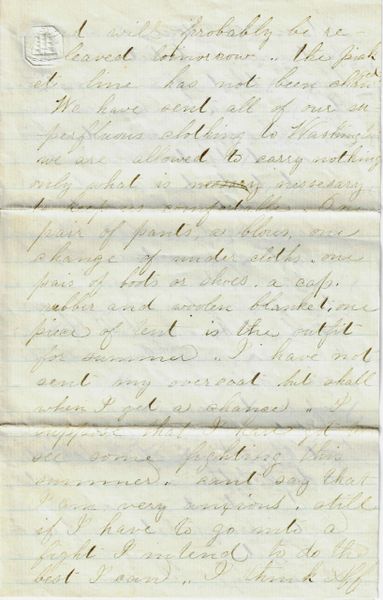 I will probably be re-
leaved tomorrow .. the pick
et line has not been
We have sent all of our su
perfluous clothing to Washington
we are allowed to carry nothing
only what is nessary nessesary
to keep us comfortable. One
pair of pants, a blous, one
change of under cloths. one
pair of boots or shoes. a cap.
rubber and woolen blanket, one
piece of tent is the outfit
for summer .. I have not
sent my overcoat but shall
when I get a chance .. I
suppose that I have got to
see some fighting this
summer. cant say that
I am very anxious. still
if I have to go into a
fight I intend to do the
best I can .. I think